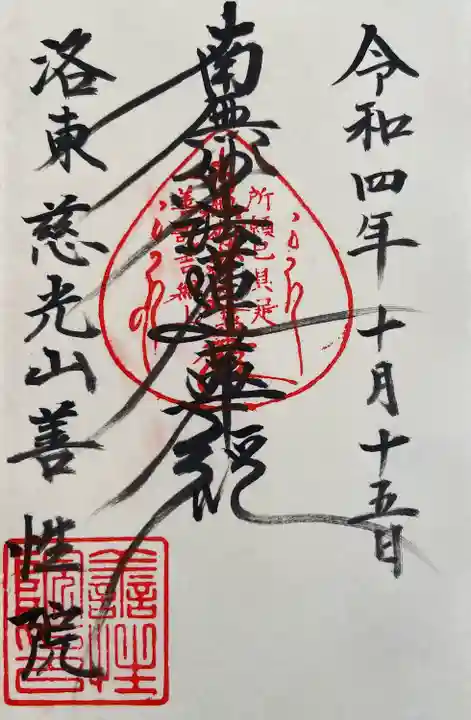 令和四年十月十五日
南無妙法蓮華経
所願已具足
洛東 慈光山 善性院